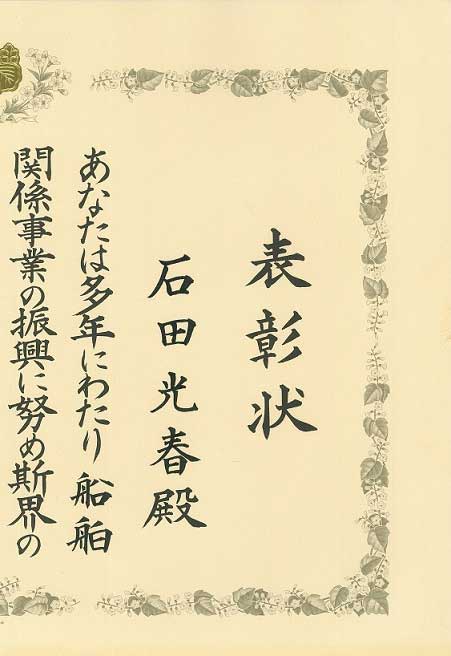 表彰状
石田光春殿
あなたは多年にわたり船舶
関係事業の振興に努め斯界の